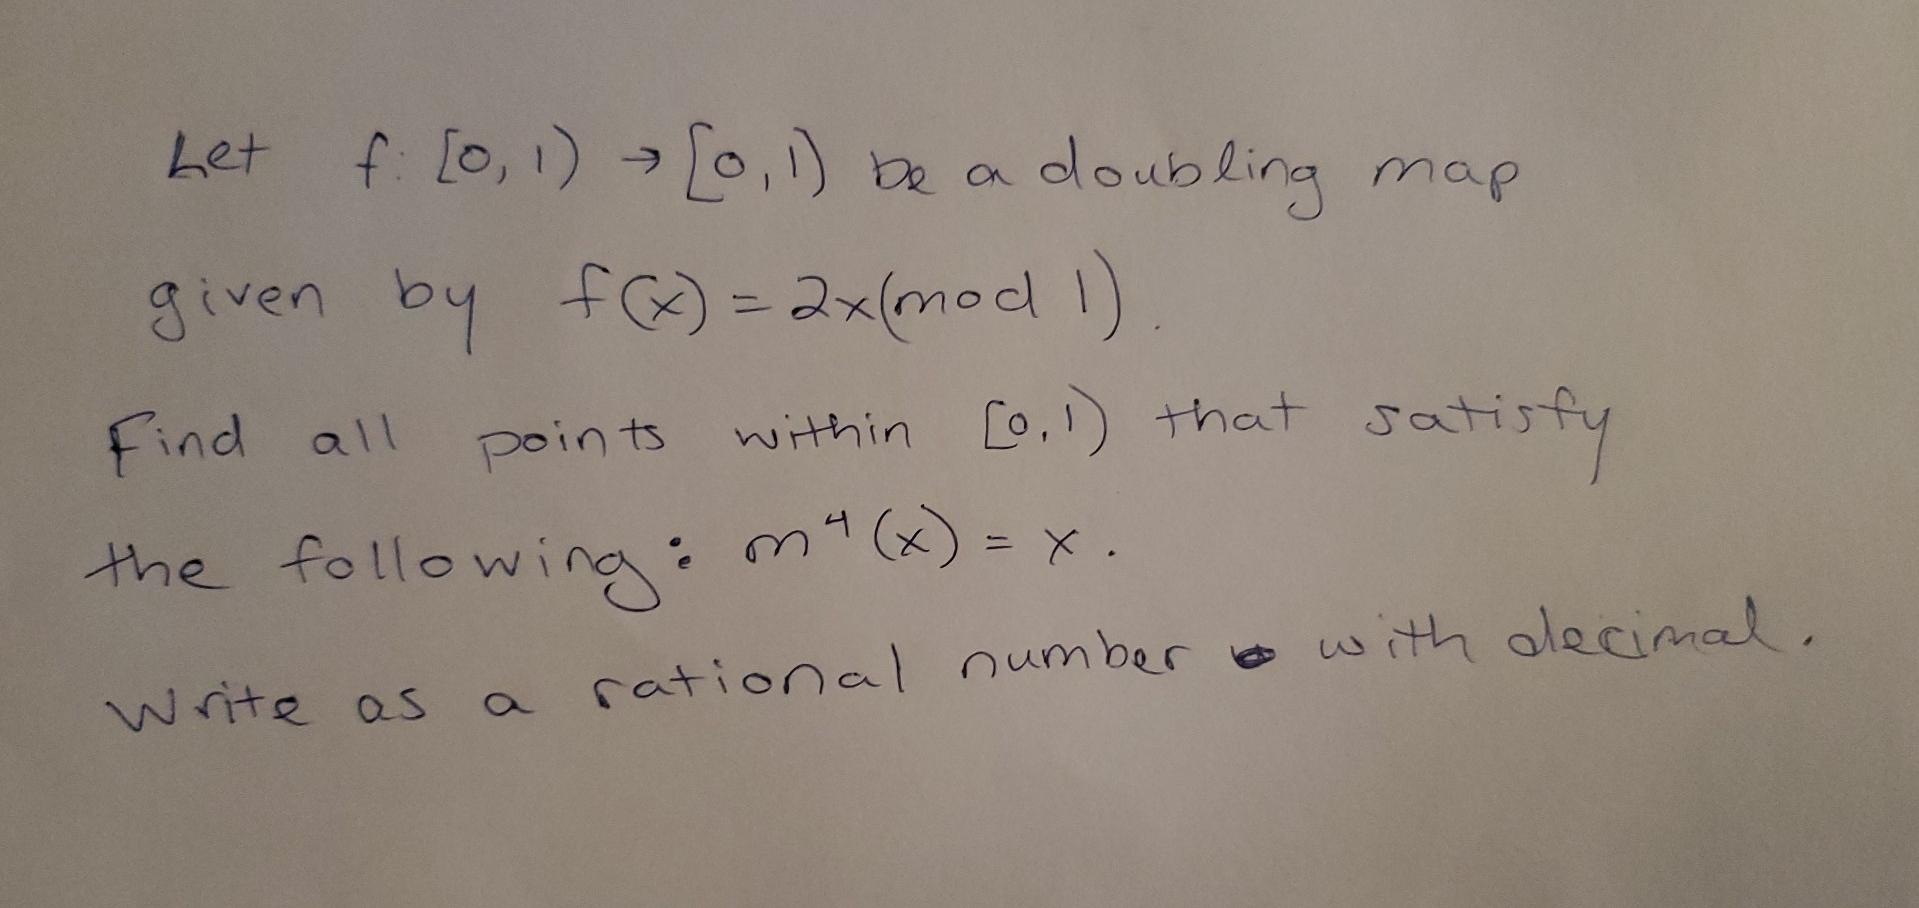 Let f: [0,1) → [0,1) be a doubling map
given by f(x) = 2x(mod 1).
Find all points within [0,1) that satisfy
the following: m⁴(x) = x.
Write as a rational number with decimal.